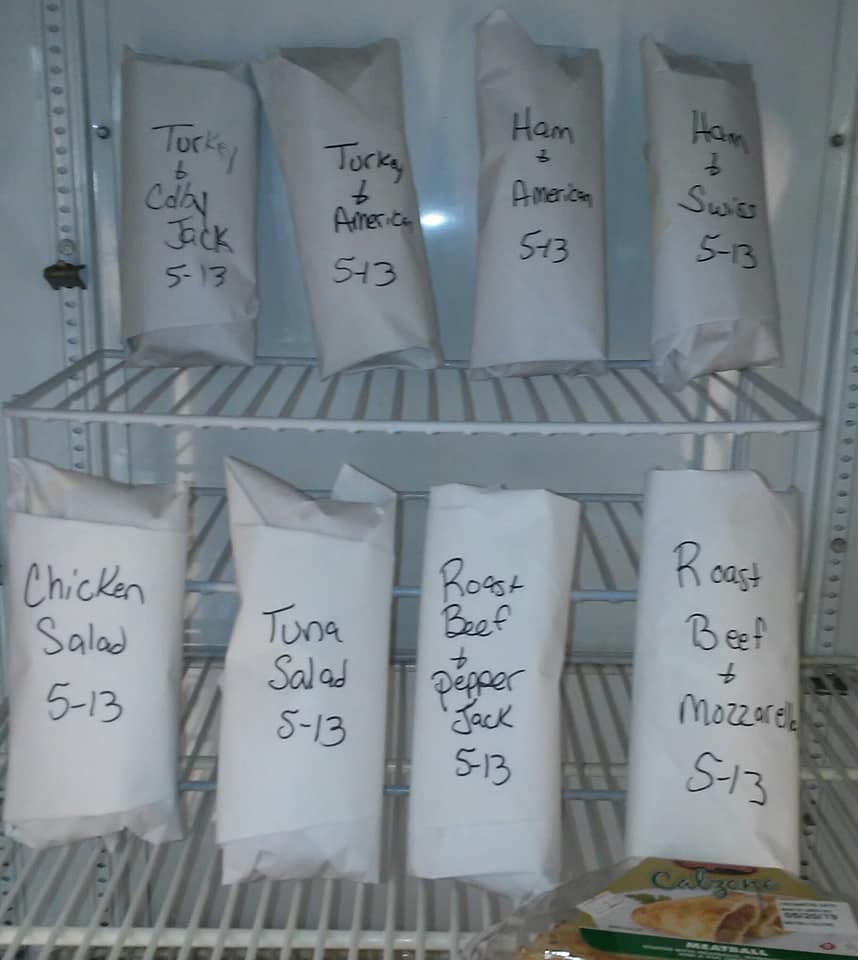 Turkey
&
Colby
Jack
5-13
Turkey
&
American
5-13
Ham
&
American
5-13
Ham
&
Swiss
5-13
Chicken
Salad
5-13
Tuna
Salad
5-13
Roast
Beef
&
pepper
Jack
5-13
Roast
Beef
&
Mozzarella
5-13
Calzone
05/20/19
MEATBALL